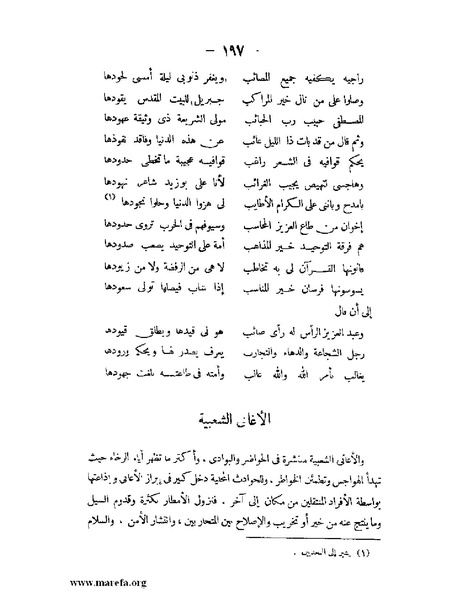 — ١٩٧ —
راجيه يكفيه جميع المصائب ويغفر ذنوبى ليلة أمسى لحودها
وصلوا على من نال خير المراكب جبريل للبيت المقدس يقودها
المصطفى حبيب رب الحبائب مولى الشريعة ذى وثيقة عهودها
وثم قال من قد بات ذا الليل عائب عن هذه الدنيا وفاقد نفوذها
يحكم قوافيه فى الشعر راغب قوافيه عجيبة ما تخطى حدودها
وهاجسى يجيب الغرائب لأنا على بوزيد شاعر نهودها
بامدح وباثنى على الكرام الأطايب لى هزوا الدنيا وحلوا نجودها (١)
إخوان من طاع العزيز المحاسب وسيوفهم فى الحرب تروى حدودها
هم فرقة التوحيد خير المذاهب أمة على التوحيد يصعب صدودها
قانونها القرآن لى به تخاطب لا هى من الرفضة ولا من زيودها
يسوسونها فرسان خير المناسب إذا غاب فيصلها تولى سعودها
إلى أن قال
وعبد العزيز الرأس له رأى صائب هو فى قيدها ويطلق قيودها
رجل الشجاعة والدهاء والتجارب يعرف يصدر لها ويحكم ورودها
يغالب بأمر الله والله غالب وأمته فى طاعته بلغت جهودها
الأغانى الشعبية
والأغانى الشعبية منتشرة فى الحواضر والبوادى . وأكثر ما تظهر أيام الرخاء حيث
تهدأ الهواجس وتطمئن الخواطر . وللحوادث المحلية دخل كبير فى إبراز الأغانى وإذاعتها
بواسطة الأفراد المنتقلين من مكان إلى آخر . فنزول الأمطار بكثرة وقدوم السيل
وما ينتج عنه من خير أو تخريب والإصلاح بين المتحاربين ، وانتشار الأمن ، والسلام
(١) يشير إلى النجديين .
www.marefa.org